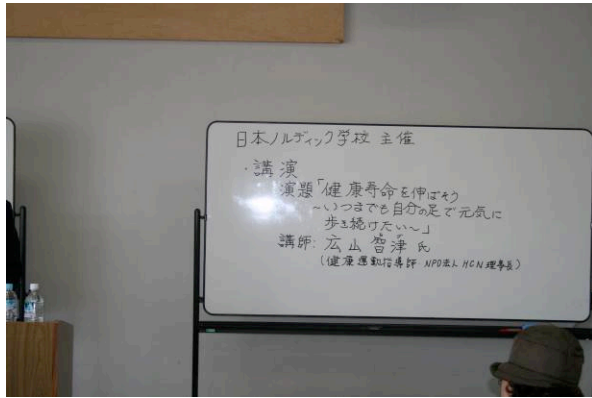 日本ノルディック学校 主催
・講演
演題「健康寿命を伸ばそう
～いつまでも自分の足で元気に
歩き続けたい～」
講師: 広山智津氏
(健康運動指導師 NPO法人 HCN理事長)